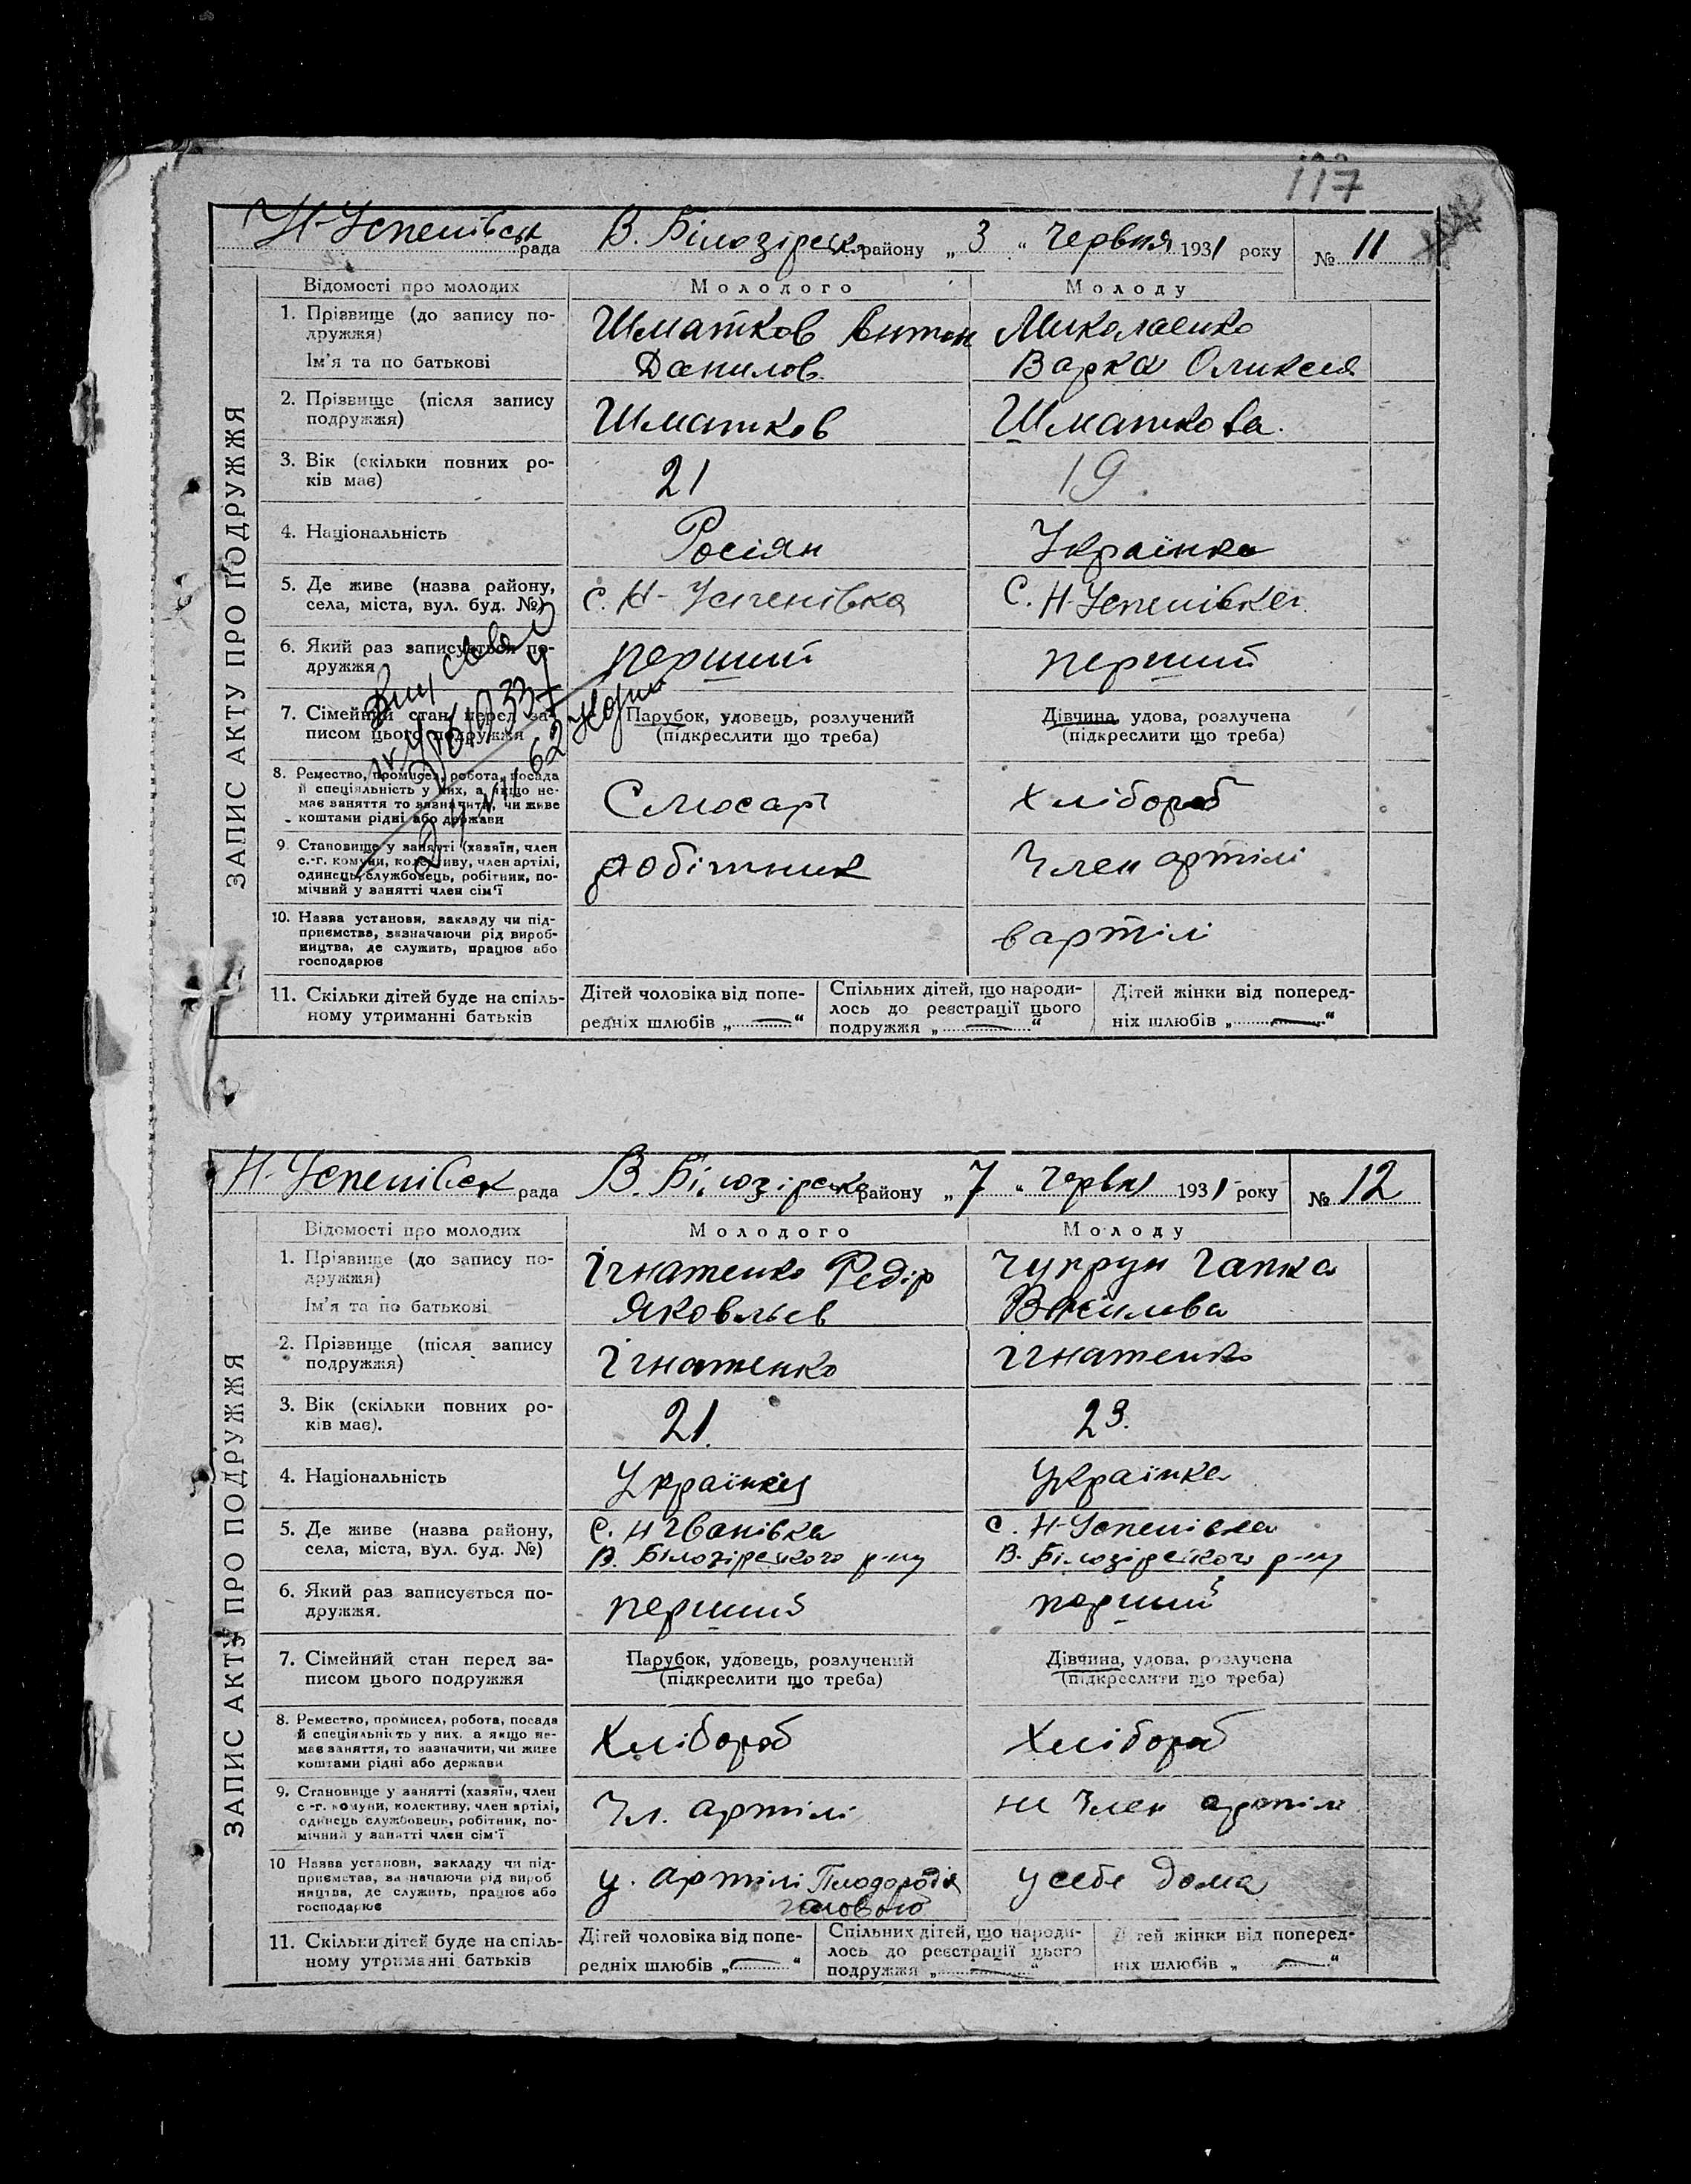 117
Н-Успенівськ рада В. Білозірська району „3“ Червня 1931 року № 11
ЗАПИС АКТУ ПРО ПОДРУЖЖЯ
Відомості про молодих Молодого Молоду
1. Прізвище (до запису по- Шматков Антон Миколаенко
дружжя)
Ім'я та по батькові Данилов. Варка Оликсея
2. Прізвище (після запису Шматков Шматкова.
подружжя)
3. Вік (скільки повних ро- 21 19.
ків має)
4. Національність Росіян Українка
5. Де живе (назва району, с. Н-Успенівка С. Н-Успенівка.
села, міста, вул. буд. №)
6. Який раз записується по- перший перший
дружжя
7. Сімейний стан перед за- Парубок, удовець, розлучений Дівчина, удова, розлучена
писом цього подружжя (підкреслити що треба) (підкреслити що треба)
8. Ремество, промисел, робота, посада Слюсар Хлібороб
й спеціяльність у них, а якщо не-
має заняття то зазначити, чи живе
коштами рідні або держави
9. Становище у занятті (хазяїн, член робітник Член артілі
с.-г. комуни, колективу, член артілі,
одинець, службовець, робітник, по-
мічний у занятті член сім'ї
10. Назва установи, закладу чи під- вартілі
приємства, зазначаючи рід вироб-
ництва, де служить, працює або
господарює
11. Скільки дітей буде на спіль- Дітей чоловіка від попе- Спільних дітей, що народи- Дітей жінки від поперед-
ному утриманні батьків редніх шлюбів „—“ лось до реєстрації цього ніх шлюбів „—“
подружжя „—“
Н-Успенівськ рада В. Білозірська району „7“ Червня 1931 року № 12
ЗАПИС АКТУ ПРО ПОДРУЖЖЯ
Відомості про молодих Молодого Молоду
1. Прізвище (до запису по- Ігнатенко Федір Чупрун Гапка
дружжя)
Ім'я та по батькові Яковльев Василива
2. Прізвище (після запису Ігнатенко Ігнатенко
подружжя)
3. Вік (скільки повних ро- 21. 23.
ків має).
4. Національність Українец Українка
5. Де живе (назва району, с. Н Іванівка с. Н-Успенівка
села, міста, вул. буд. №) В. Білозірського р-ну В. Білозірського р-ну
6. Який раз записується по- перший перший
дружжя.
7. Сімейний стан перед за- Парубок, удовець, розлучений Дівчина, удова, розлучена
писом цього подружжя (підкреслити що треба) (підкреслити що треба)
8. Ремество, промисел, робота, посада Хлібороб Хлібороб
й спеціяльність у них. а якщо не-
має заняття, то зазначити, чи живе
коштами рідні або держави
9. Становище у занятті (хазяїн, член Чл. артілі не член артілі
с-г. комуни, колективу, член артілі,
одинець службовець, робітник, по-
мічний у занятті член сім'ї
10 Назва установи, закладу чи під- у. артілі Плодородія у себе дома
приємства, зазначаючи рід вироб
ництва, де служить, працює або
господарює
11. Скільки дітей буде на спіль- Дітей чоловіка від попе- Спільних дітей, що народи- Дітей жінки від поперед-
ному утриманні батьків редніх шлюбів „—“ лось до реєстрації цього ніх шлюбів „—“
подружжя „—“